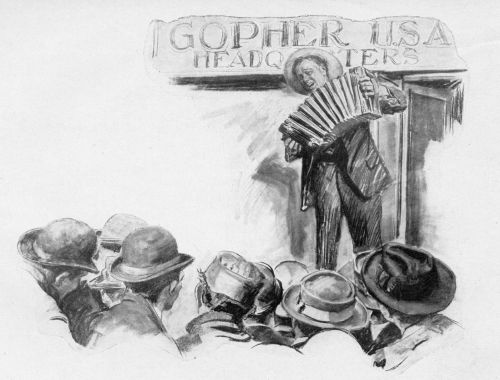 GOPHER USA
HEADQ TERS